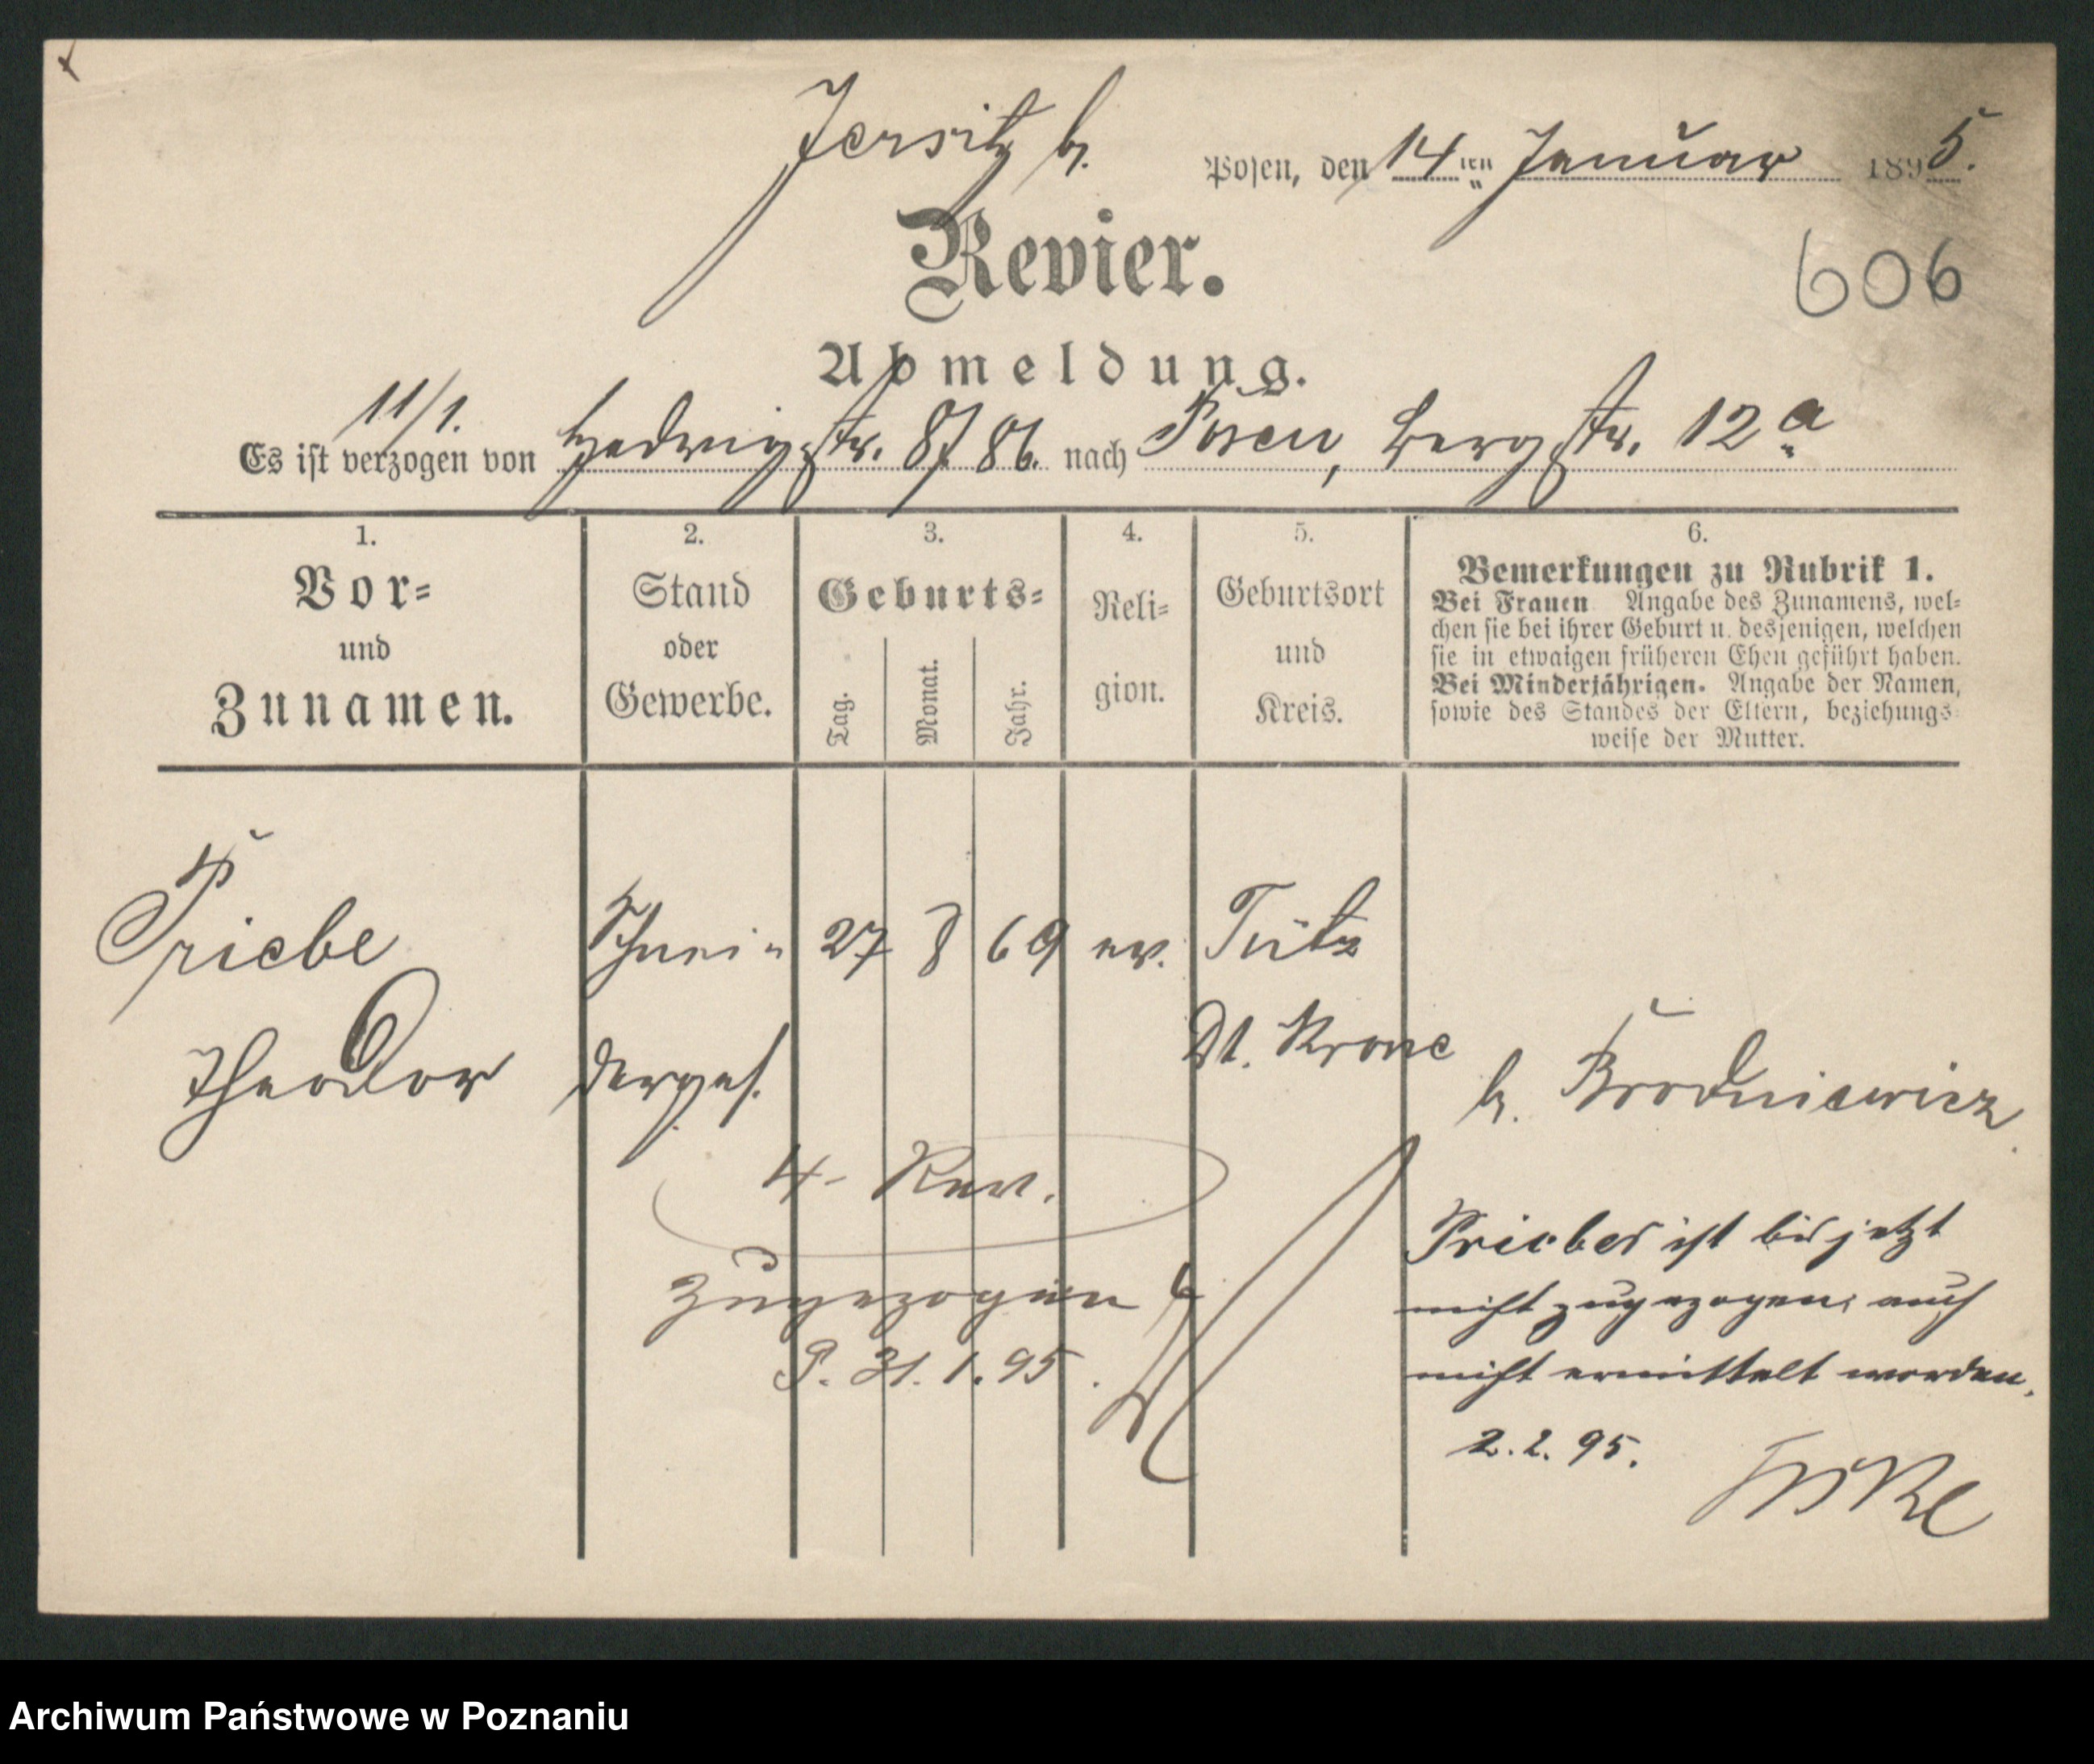 Jersitz b.
Posen, den 14ten Januar 1895.
Revier.
606
Abmeldung.
11/1.
Es ist verzogen von Hedwigstr. 8/86. nach Posen, Bergstr. 12a
1. 2. 3. 4. 5. 6.
Vor-
und
Zunamen.
Stand
oder
Gewerbe.
Geburts-
Tag. Monat. Jahr.
Reli-
gion.
Geburtsort
und
Kreis.
Bemerkungen zu Rubrik 1.
Bei Frauen Angabe des Zunamens, wel-
chen sie bei ihrer Geburt u. desjenigen, welchen
sie in etwaigen früheren Ehen geführt haben.
Bei Minderjährigen. Angabe der Namen,
sowie des Standes der Eltern, beziehungs-
weise der Mutter.
Priebe Schnei- 27 8 69 ev. Tütz
Theodor derges. Dt. Krone b. Brodniewicz
4. Rev.
Zugezogen
P. 31. 1. 95.
Priebes ist bis jetzt
nicht zugezogen; auch
nicht ermittelt worden.
2. 2. 95.
Archiwum Państwowe w Poznaniu